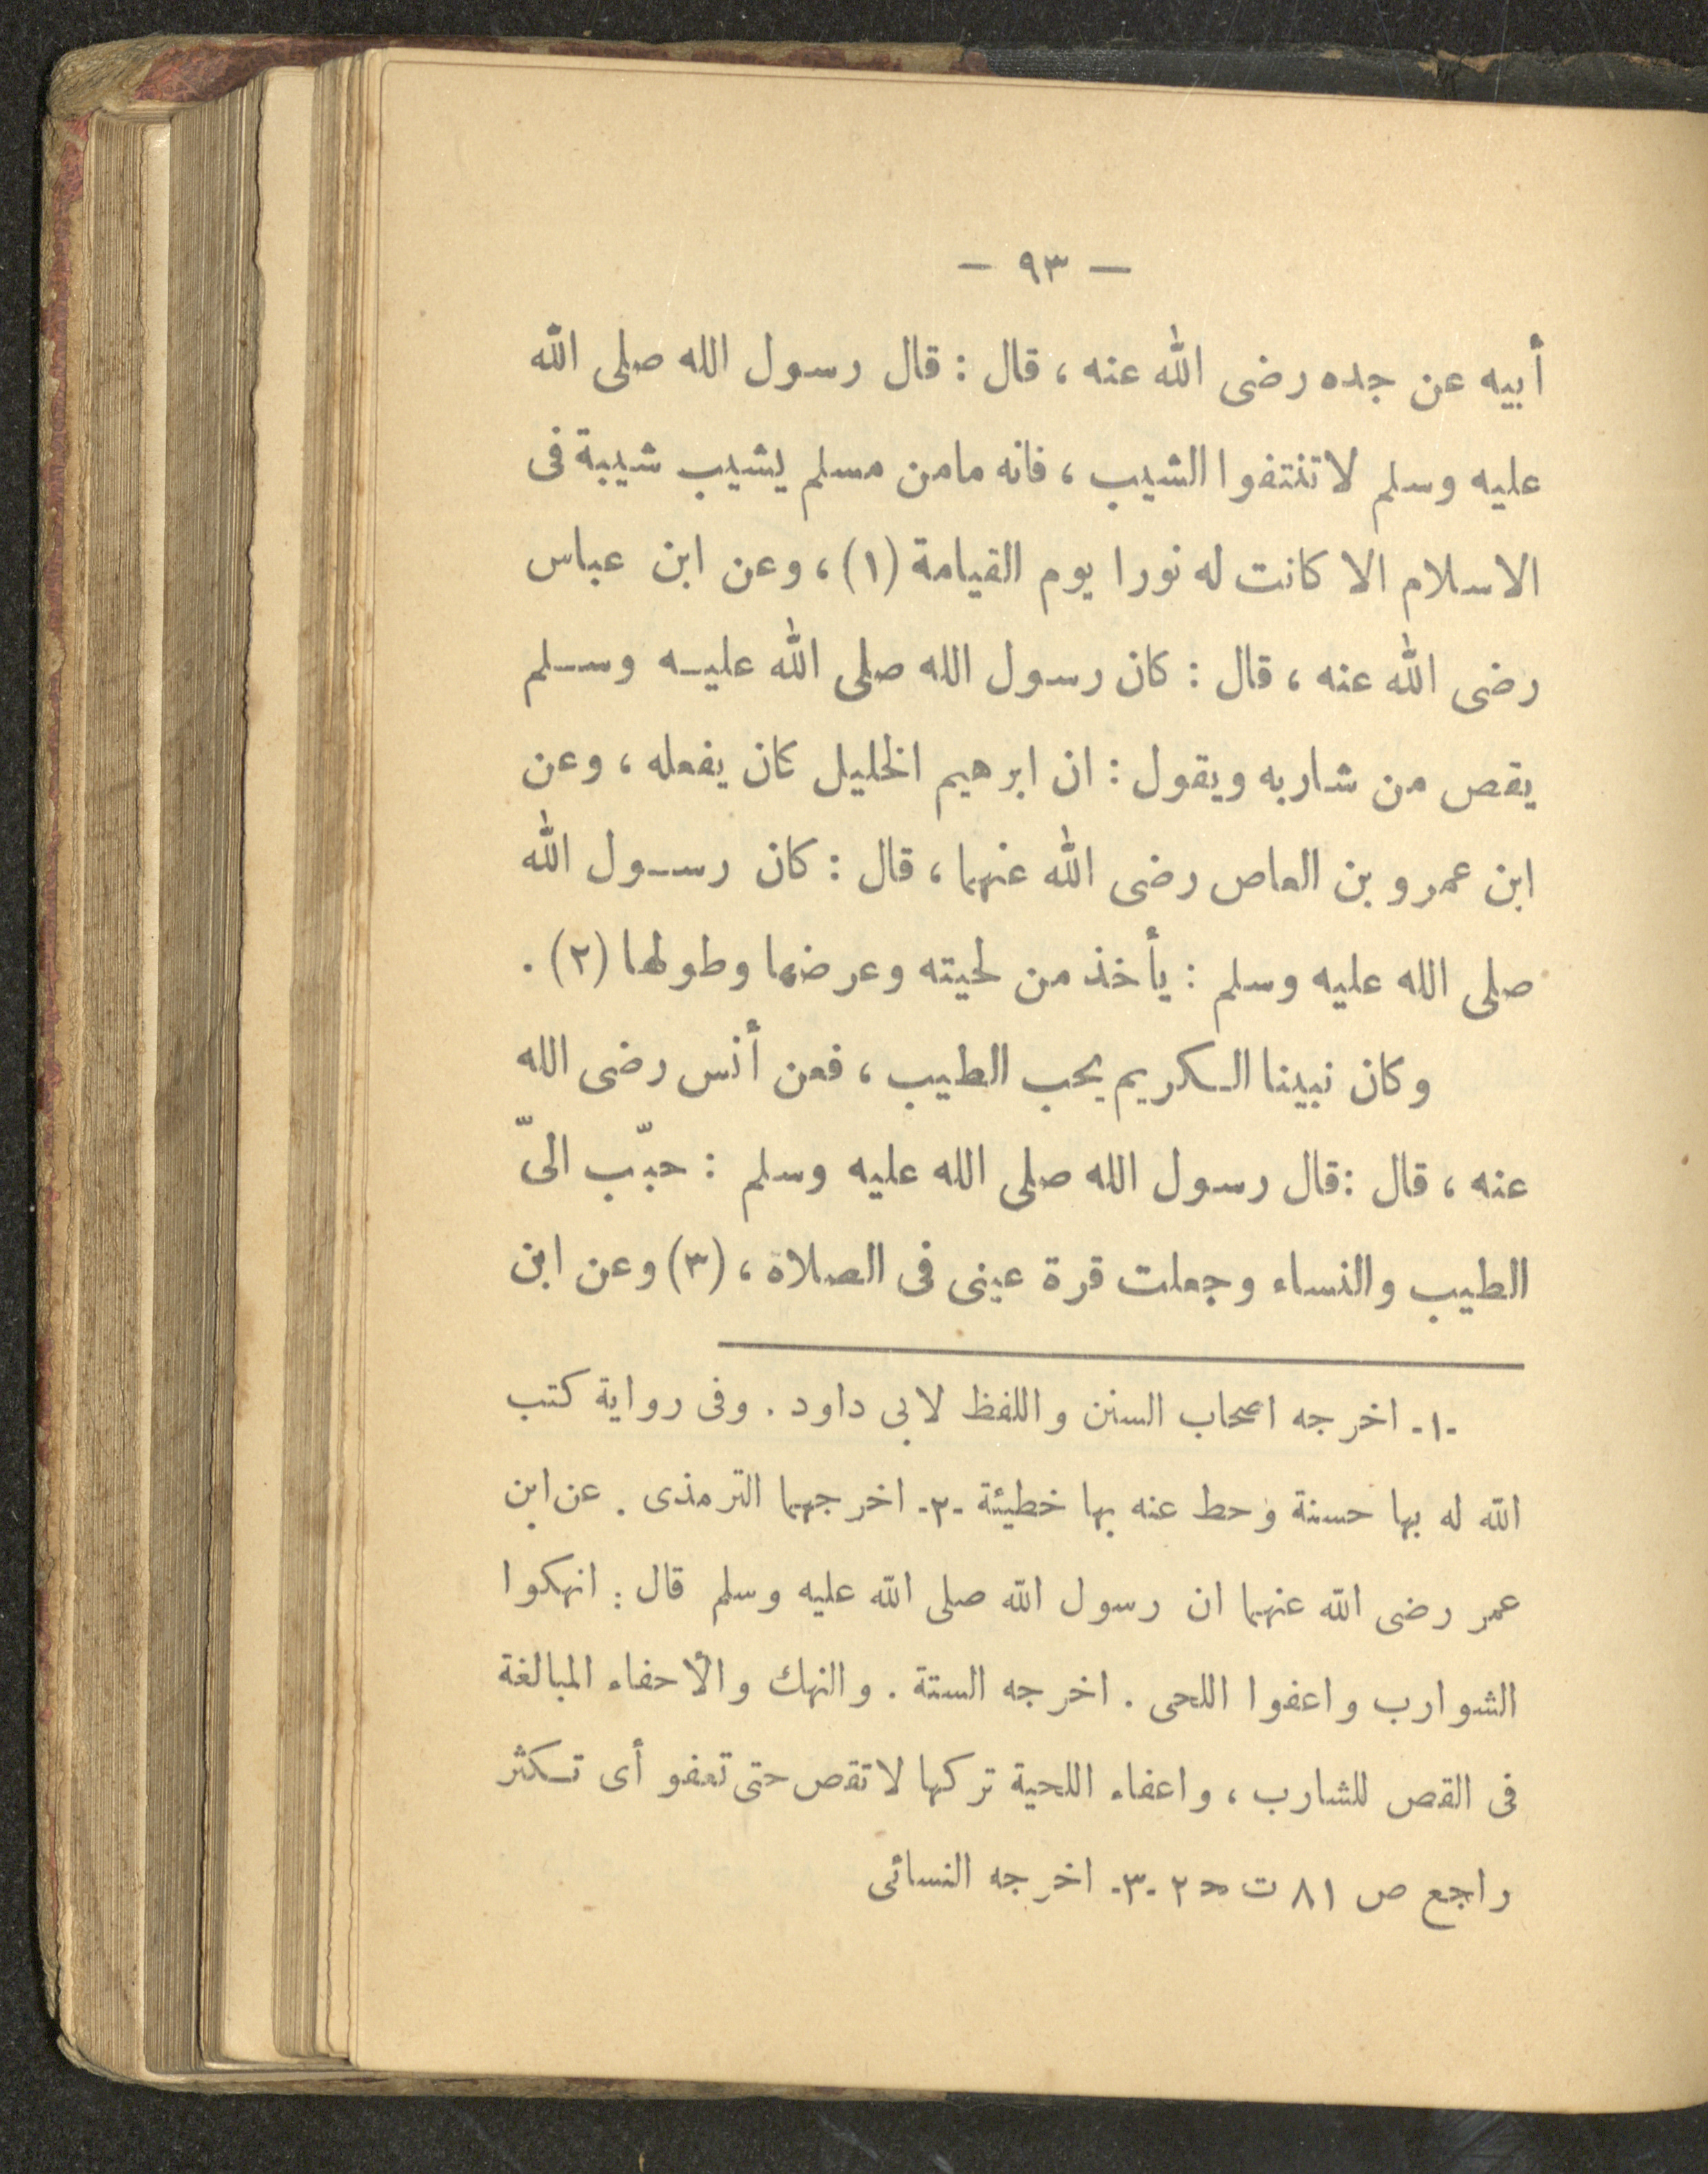 — ٩٣ —
أبيه عن جده رضى الله عنه ، قال : قال رسول الله صلى الله
عليه وسلم لاتنتفوا الشيب ، فانه مامن مسلم يشيب شيبة فى
الاسلام الا كانت له نورا يوم القيامة (١) ، وعن ابن عباس
رضى الله عنه ، قال : كان رسول الله صلى الله عليـه وسـلم
يقص من شاربه ويقول : ان ابرهيم الخليل كان يفعله ، وعن
ابن عمرو بن العاص رضى الله عنهما ، قال : كان رسـول الله
صلى الله عليه وسلم : يأخذ من لحيته وعرضها وطولها (٢) .
وكان نبينا الـكريم يحب الطيب ، فعن أنس رضى الله
عنه ، قال :قال رسول الله صلى الله عليه وسلم : حبّب الىّ
الطيب والنساء وجعلت قرة عينى فى الصلاة ، (٣) وعن ابن
-١- اخرجه اصحاب السنن واللفظ لابى داود . وفى رواية كتب
الله له بها حسنة وحط عنه بها خطيئة -٢- اخرجهما الترمذى . عن ابن
عمر رضى الله عنهما ان رسول الله صلى الله عليه وسلم قال : انهكوا
الشوارب واعفوا اللحى . اخرجه الستة . والنهك والأحفاء المبالغة
فى القص للشارب ، واعفاء اللحية تركها لاتقص حتى تعفو أى تـكثر
راجع ص ٨١ ت ح ٢ -٣- اخرجه النسائى